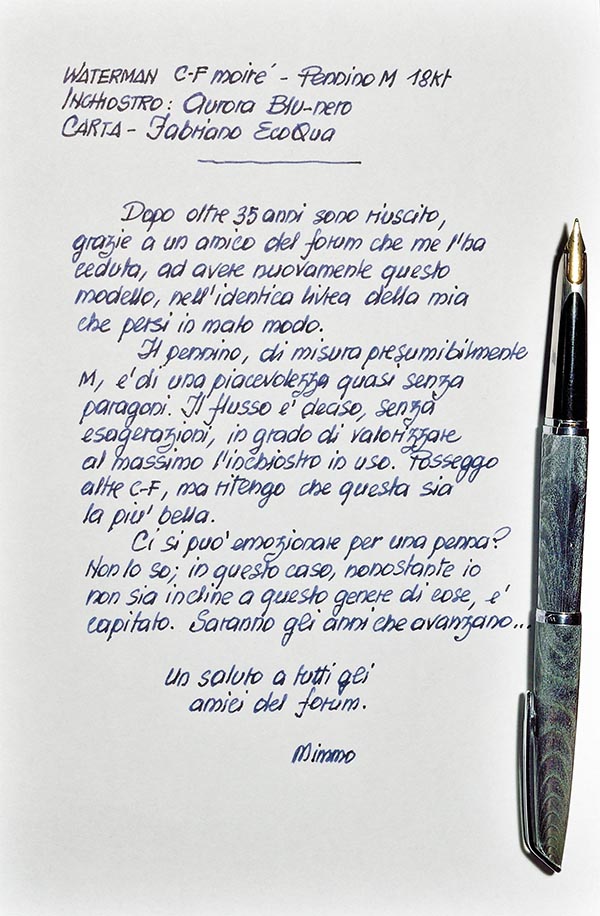 WATERMAN C-F moiré - Pennino M 18kt
INCHIOSTRO: Aurora Blu-nero
CARTA - Fabriano EcoQua
Dopo oltre 35 anni sono riuscito,
grazie a un amico del forum che me l'ha
ceduta, ad avere nuovamente questo
modello, nell'identica livrea della mia
che persi in malo modo.
Il pennino, di misura presumibilmente
M, e' di una piacevolezza quasi senza
paragoni. Il flusso e' deciso, senza
esagerazioni, in grado di valorizzare
al massimo l'inchiostro in uso. Posseggo
altre C-F, ma ritengo che questa sia
la piu' bella.
Ci si puo' emozionare per una penna?
Non lo so; in questo caso, nonostante io
non sia incline a questo genere di cose, e'
capitato. Saranno gli anni che avanzano...
Un saluto a tutti gli
amici del forum.
Mimmo